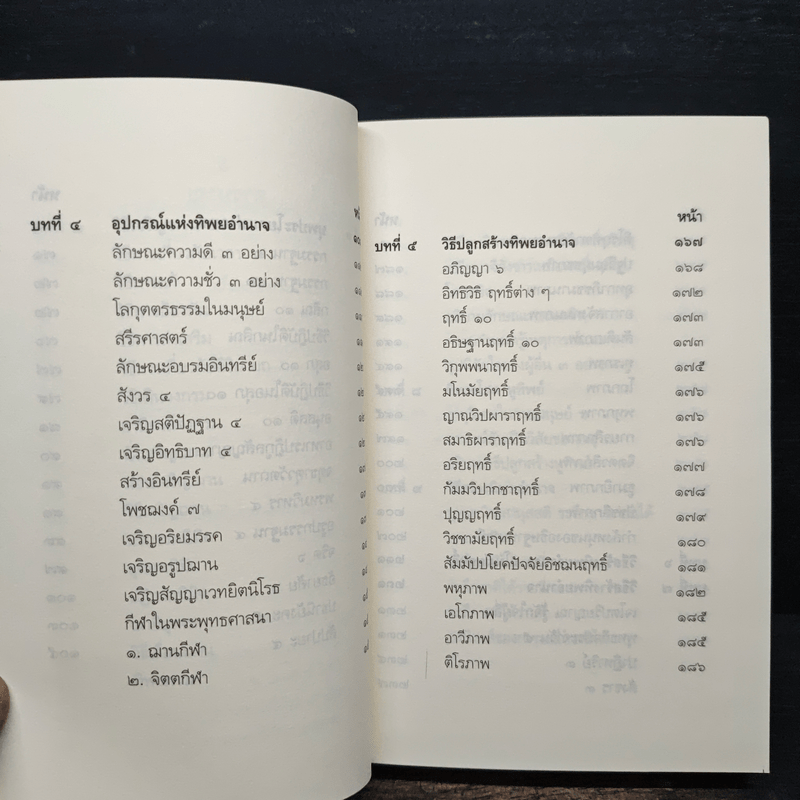 บทที่ ๔ อุปกรณ์แห่งทิพยอำนาจ
ลักษณะความดี ๓ อย่าง
ลักษณะความชั่ว ๓ อย่าง
โลกุตตรธรรมในมนุษย์
สรีรศาสตร์
ลักษณะอบรมอินทรีย์
สังวร ๔
เจริญสติปัฏฐาน ๔
เจริญอิทธิบาท ๔
สร้างอินทรีย์
โพชฌงค์ ๗
เจริญอริยมรรค
เจริญอรูปฌาน
เจริญสัญญาเวทยิตนิโรธ
กีฬาในพระพุทธศาสนา
๑. ฌานกีฬา
๒. จิตตกีฬา
หน้า
บทที่ ๕ วิธีปลูกสร้างทิพยอำนาจ ๑๖๗
อภิญญา ๖ ๑๖๘
อิทธิวิธิ ฤทธิ์ต่าง ๆ ๑๗๒
ฤทธิ์ ๑๐ ๑๗๓
อธิษฐานฤทธิ์ ๑๐ ๑๗๓
วิกุพพนาฤทธิ์ ๑๗๕
มโนมัยฤทธิ์ ๑๗๖
ญาณวิปผาราฤทธิ์ ๑๗๖
สมาธิผาราฤทธิ์ ๑๗๖
อริยฤทธิ์ ๑๗๗
กัมมวิปากชาฤทธิ์ ๑๗๘
ปุญญฤทธิ์ ๑๗๙
วิชชามัยฤทธิ์ ๑๘๐
สัมมัปปโยคปัจจัยอิชฌนฤทธิ์ ๑๘๑
พหุภาพ ๑๘๒
เอโกภาพ ๑๘๕
อาวีภาพ ๑๘๕
ติโรภาพ ๑๘๖